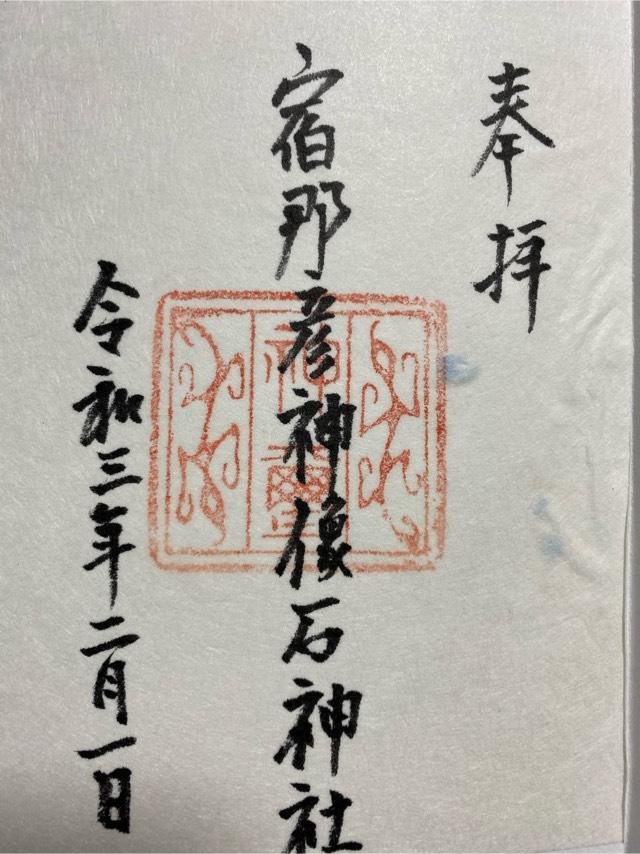 奉拝
宿那彦神像石神社
令和三年二月一日